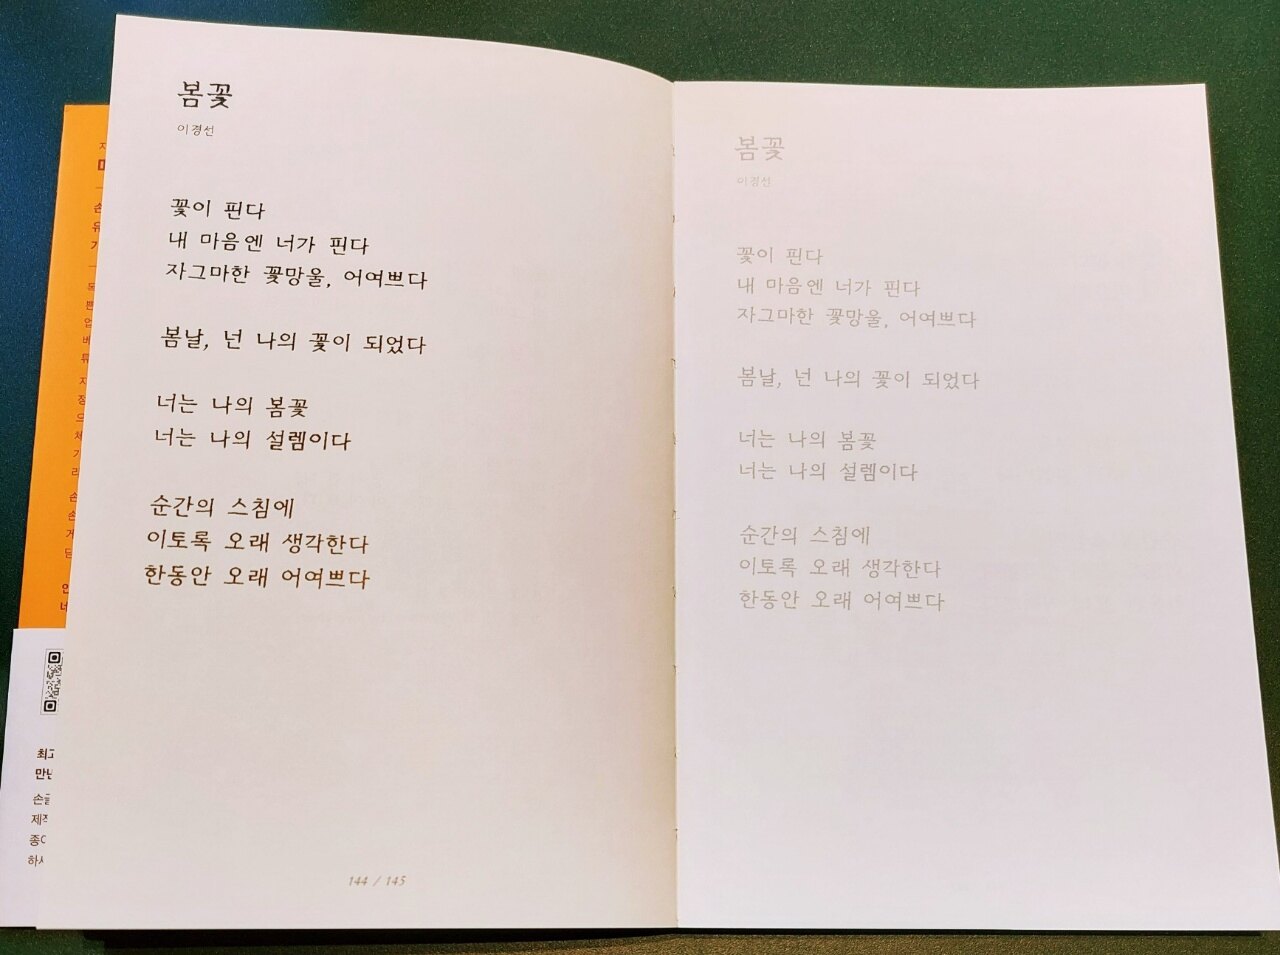 봄꽃
이경선
꽃이 핀다
내 마음엔 너가 핀다
자그마한 꽃망울, 어여쁘다
봄날, 넌 나의 꽃이 되었다
너는 나의 봄꽃
너는 나의 설렘이다
순간의 스침에
이토록 오래 생각한다
한동안 오래 어여쁘다
144 / 145
봄꽃
이경선
꽃이 핀다
내 마음엔 너가 핀다
자그마한 꽃망울, 어여쁘다
봄날, 넌 나의 꽃이 되었다
너는 나의 봄꽃
너는 나의 설렘이다
순간의 스침에
이토록 오래 생각한다
한동안 오래 어여쁘다
최고